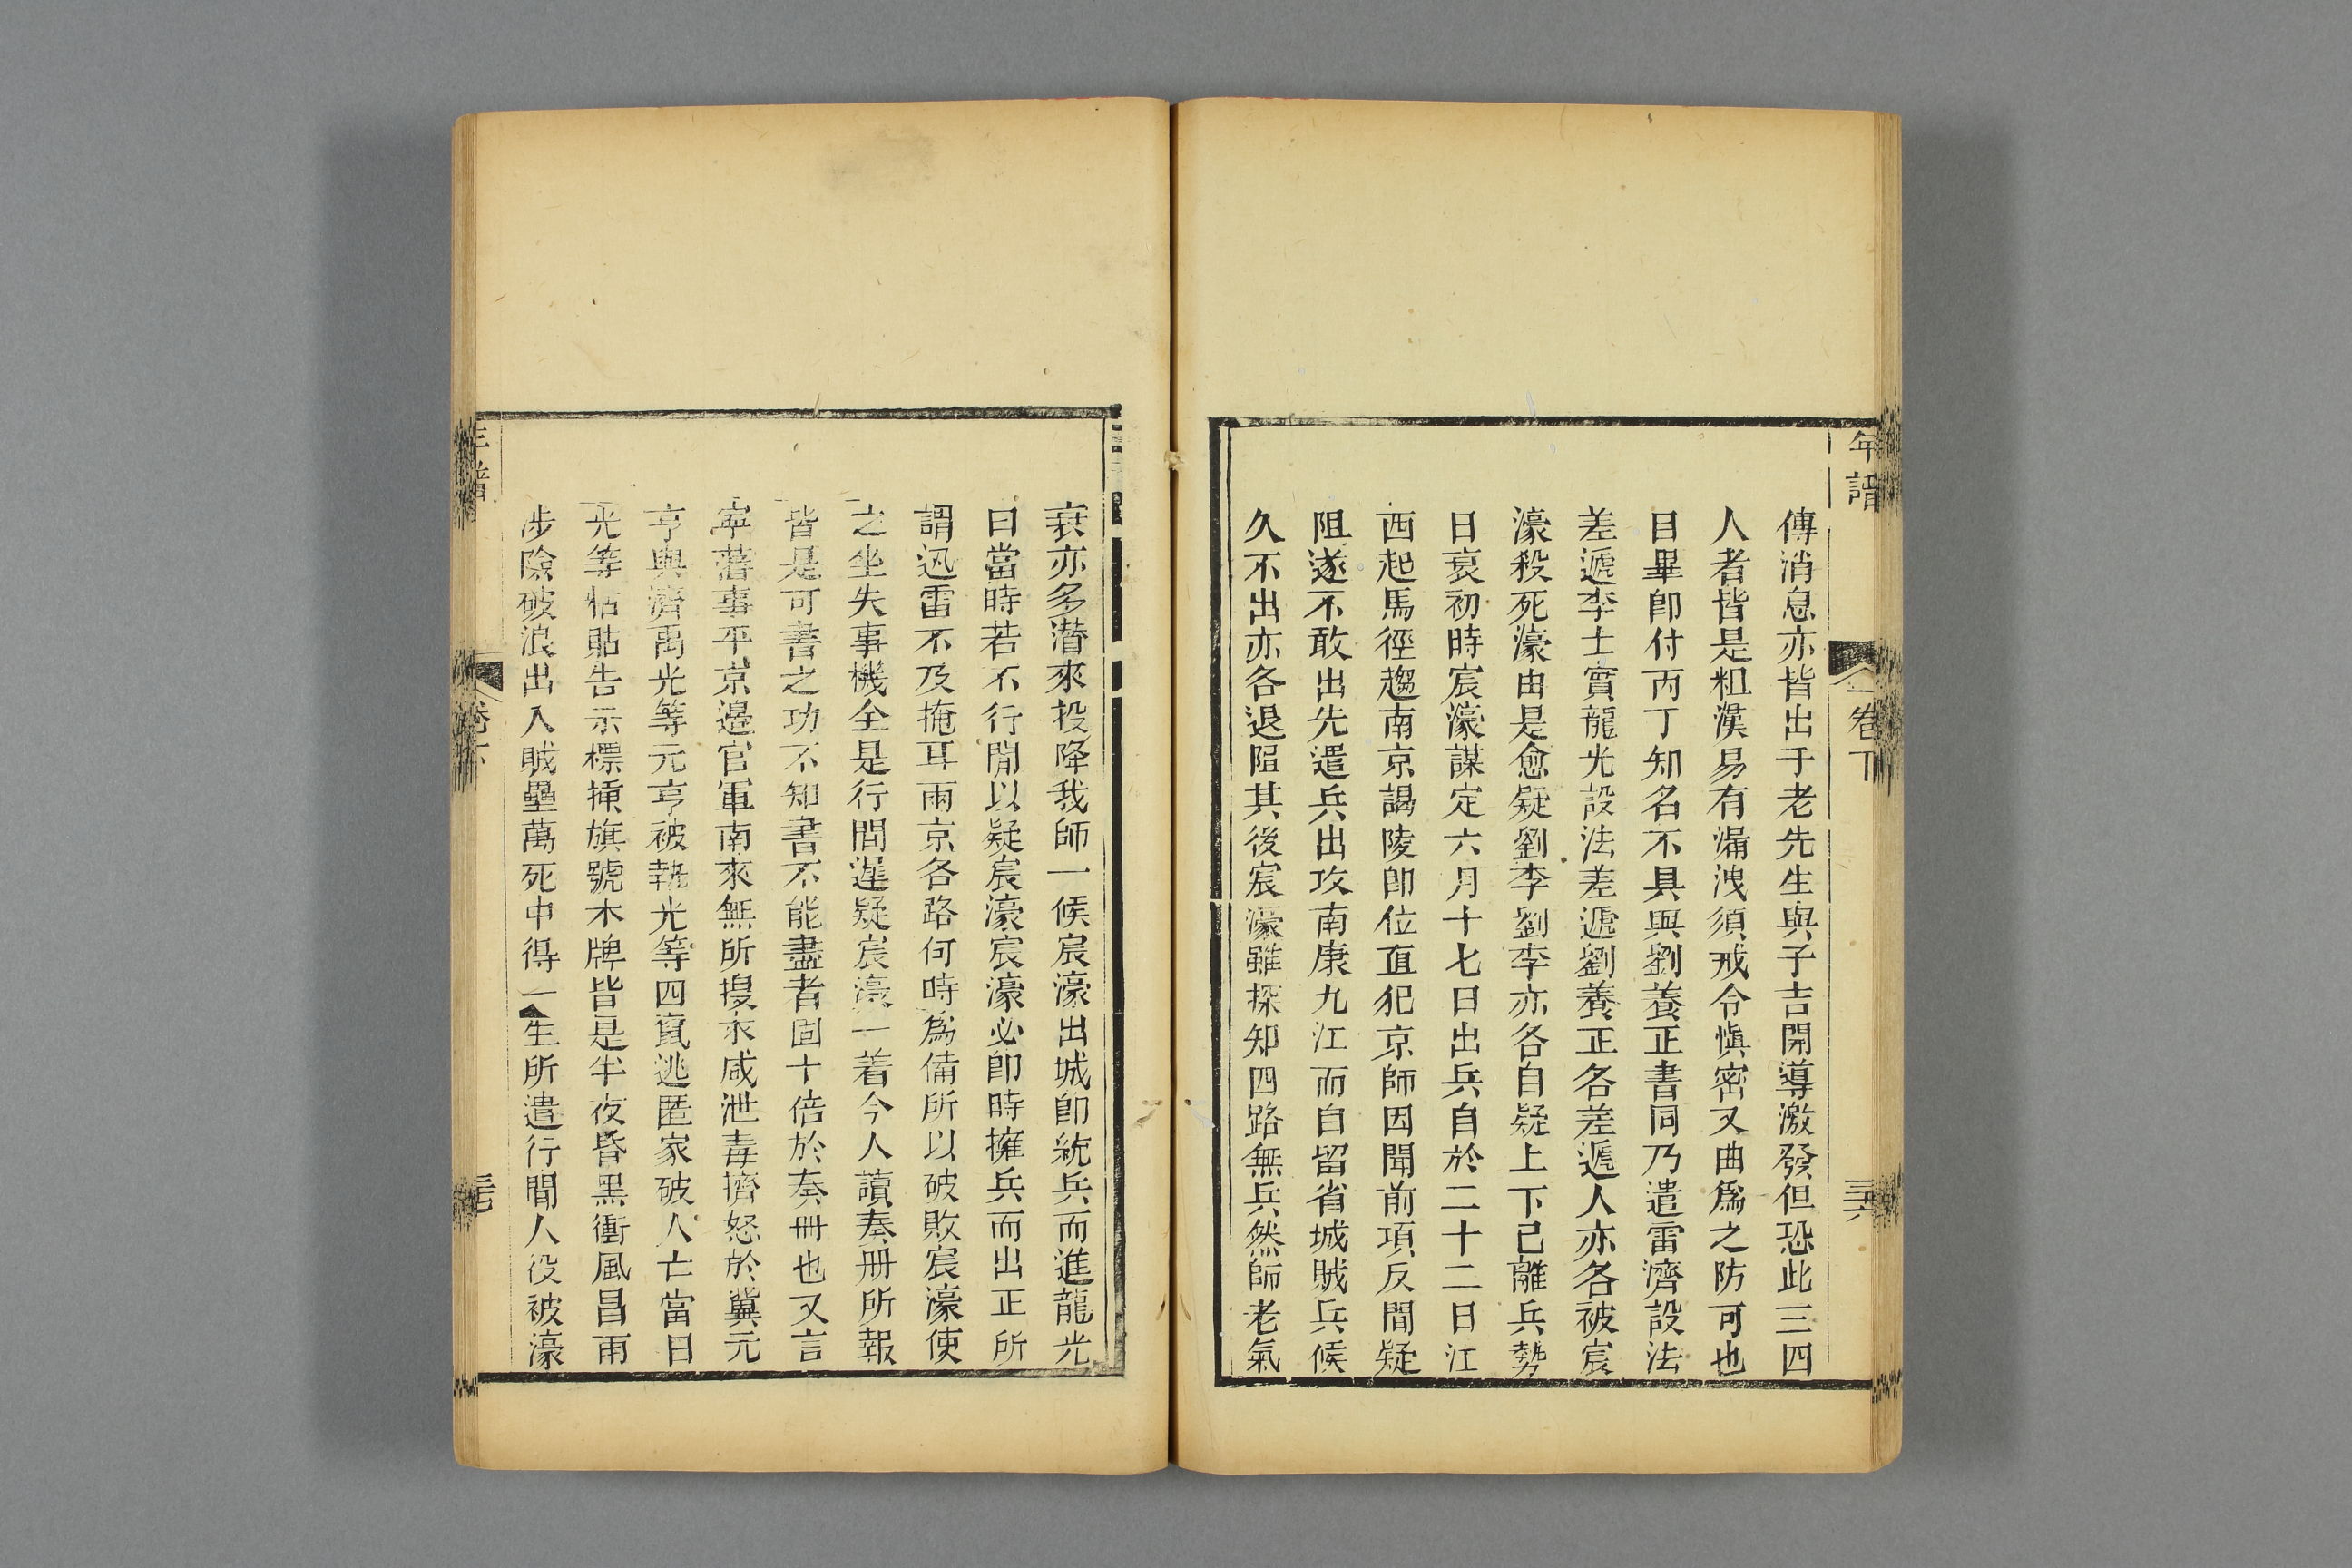 年譜 卷下 三六
傳消息亦皆出于老先生與子吉開導激發但恐此三四
人者皆是粗漢易有漏洩須戒令慎密又曲爲之防可也
目畢卽付丙丁知名不具與劉養正書同乃遣雷濟設法
差遞李士實龍光設法差遞劉養正各差遞人亦各被宸
濠殺死濠由是愈疑劉李劉李亦各自疑上下已離兵勢
日衰初時宸濠謀定六月十七日出兵自於二十二日江
西起馬徑趨南京謁陵卽位直犯京師因聞前項反間疑
阻遂不敢出先遣兵出攻南康九江而自留省城賊兵候
久不出亦各退阻其後宸濠雖探知四路無兵然師老氣
衰亦多潛來投降我師一候宸濠出城卽統兵而進龍光
曰當時若不行間以疑宸濠宸濠必卽時擁兵而出正所
謂迅雷不及掩耳兩京各路何時爲備所以破敗宸濠使
之坐失事機全是行間遲疑宸濠一着今人讀奏冊所報
皆是可書之功不知書不能盡者固十倍於奏冊也又言
寧藩事平京邊官軍南來無所搜求咸泄毒擠怒於冀元
亨與濟禹光等元亨被執光等四竄逃匿家破人亡當日
光等粘貼告示標揷旗號木牌皆是半夜昏黑衝風冒雨
涉險破浪出入賊壘萬死中得一生所遣行間人役被濠
年譜 卷下 三七